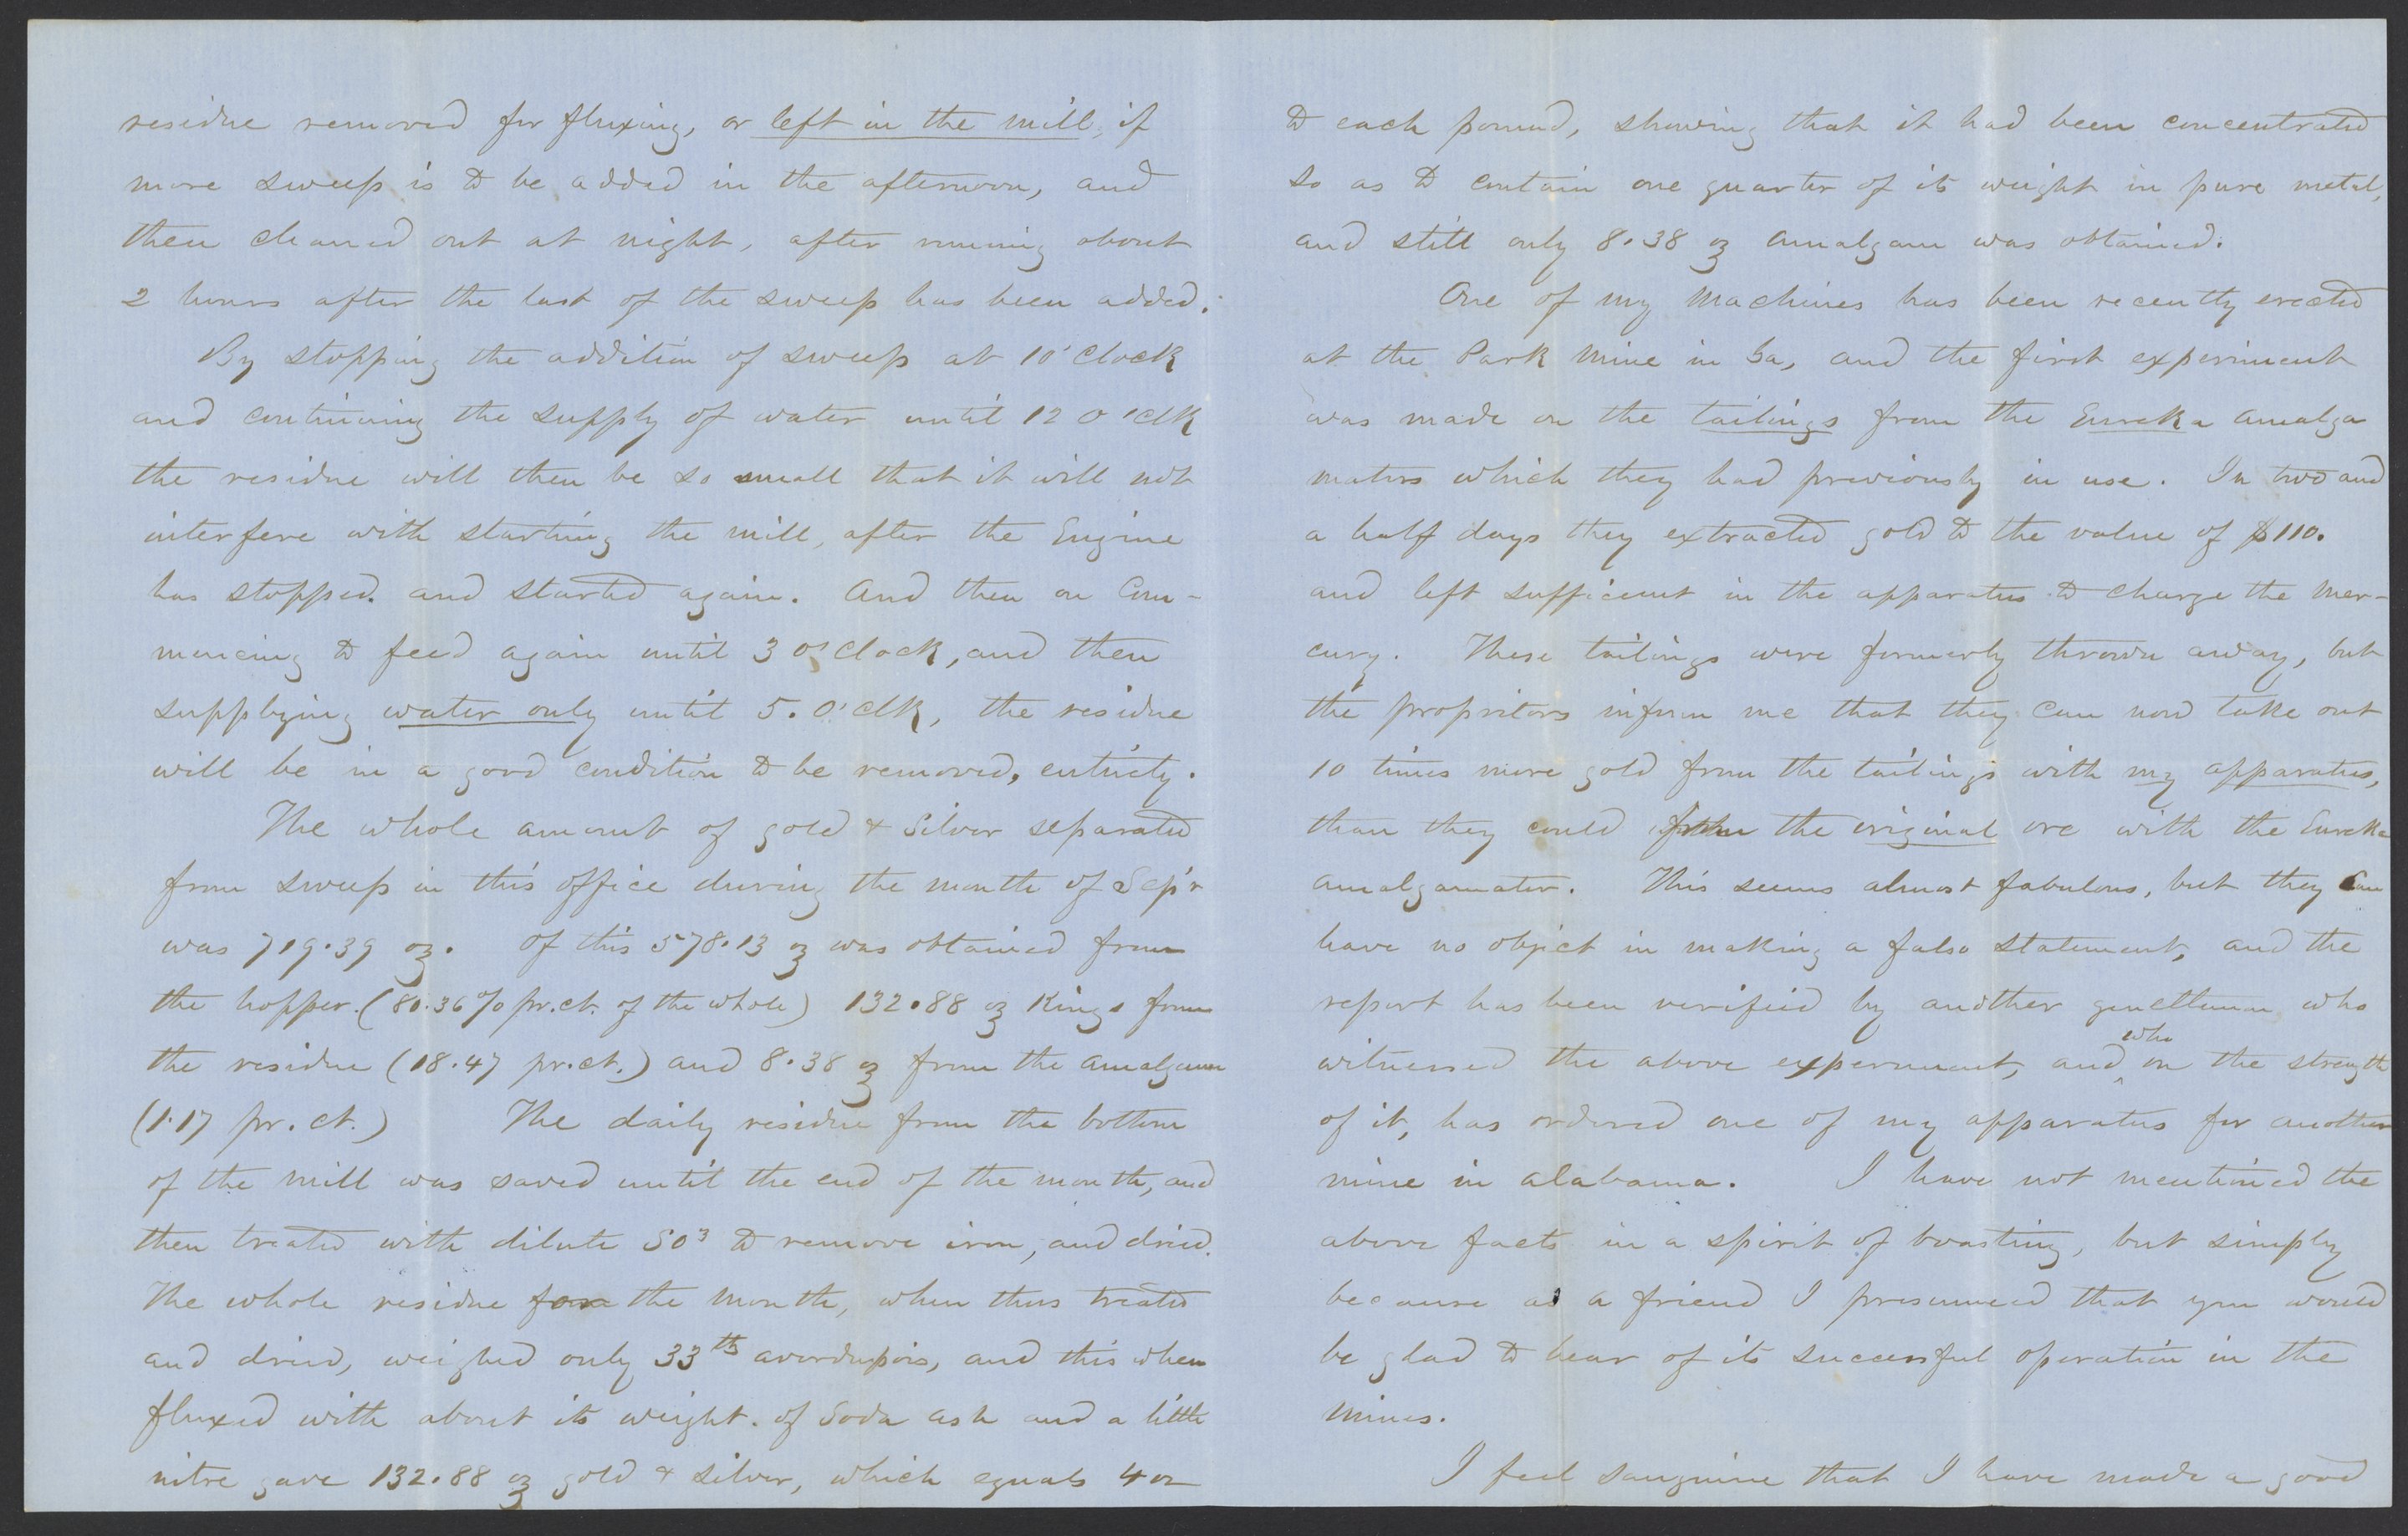 residue removed for fluxing, or left in the mill, if
more sweep is to be added in the afternoon, and
then cleaned out at night, after running about
2 hours after the last of the sweep has been added.
By stopping the addition of sweep at 10'Clock
and continuing the supply of water until 12 o'clk
the residue will then be so small that it will not
interfere with starting the mill, after the Engine
has stopped. and started again. And then on Com-
mencing to feed again until 3 o'Clock, and then
supplying water only until 5. O'clk, the residue
will be in a good condition to be removed, entirely.
The whole amount of gold & Silver separated
from sweep in this office during the month of Sep'r
was 719.39 oz. Of this 578.13 oz was obtained from
the hopper. (80.36% pr.ct. of the whole) 132.88 oz Kings from
the residue (18.47 pr.ct.) and 8.38 oz from the amalgam
(1.17 pr. ct.) The daily residue from the bottom
of the mill was saved until the end of the month, and
then treated with dilute SO3 to remove iron, and dried.
The whole residue for the month, when thus treated
and dried, weighed only 33 lb avordupois, and this when
fluxed with about its weight. of Soda ash and a little
nitre gave 132.88 oz gold & silver, which equals 4 oz
to each pound, showing that it had been concentrated
so as to contain one quarter of its weight in pure metal,
and still only 8.38 oz amalgam was obtained.
One of my Machines has been recently erected
at the Park Mine in Ga, and the first experiment
was made on the tailings from the Eureka amalga
mators which they had previously in use. In two and
a half days they extracted gold to the value of $110.
and left sufficient in the apparatus to charge the Mer-
cury. These tailings were formerly thrown away, but
the propritors inform me that they can now take out
10 times more gold from the tailings with my apparatus,
than they could from the original ore with the Eureka
amalgamator. This seems almost fabulous, but they can
have no object in making a false statement, and the
report has been verified by another genetleman who
witnessed the above experiment, and who on the strength
of it, has ordered one of my apparatus for another
mine in Alabama. I have not mentioned the
above facts in a spirit of boasting, but simply
because as a friend I presumed that you would
be glad to hear of its successful operation in the
mines.
I feel sanguine that I have made a good